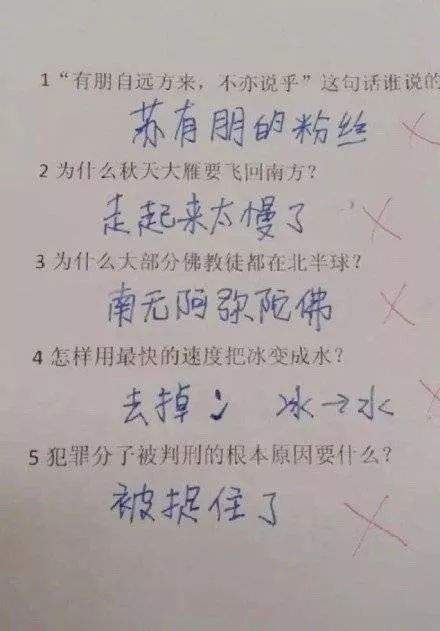 1“有朋自远方来，不亦说乎”这句话谁说的
苏有朋的粉丝
2 为什么秋天大雁要飞回南方？
走起来太慢了
3 为什么大部分佛教徒都在北半球？
南无阿弥陀佛
4 怎样用最快的速度把冰变成水？
去掉冫 冰→水
5 犯罪分子被判刑的根本原因要什么？
被捉住了